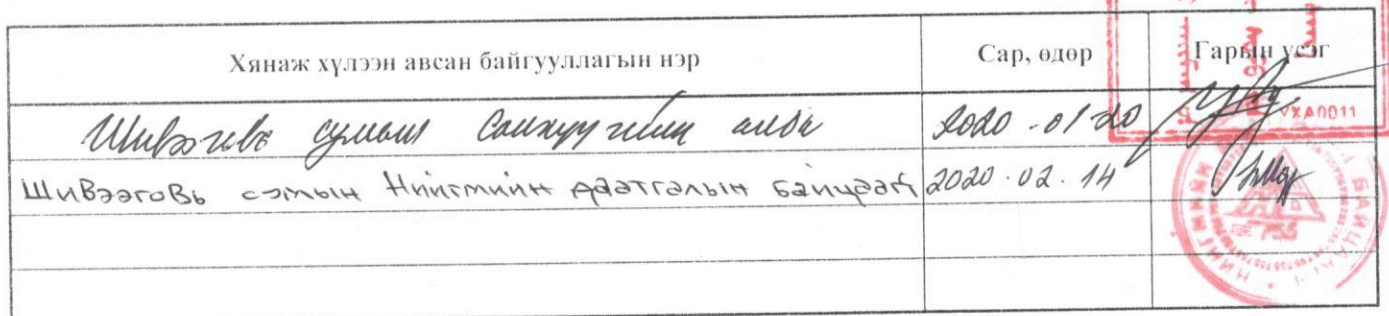 Хянаж хүлээн авсан байгууллагын нэр Сар, өдөр Гарын үсэг
Шивээговь сумын Санхүүгийн алба 2020-01-20
VXA0011
Шивээговь сумын Нийгмийн даатгалын байцаагч 2020.02.14
НИЙГМИЙН БАЙЦААГЧ
755